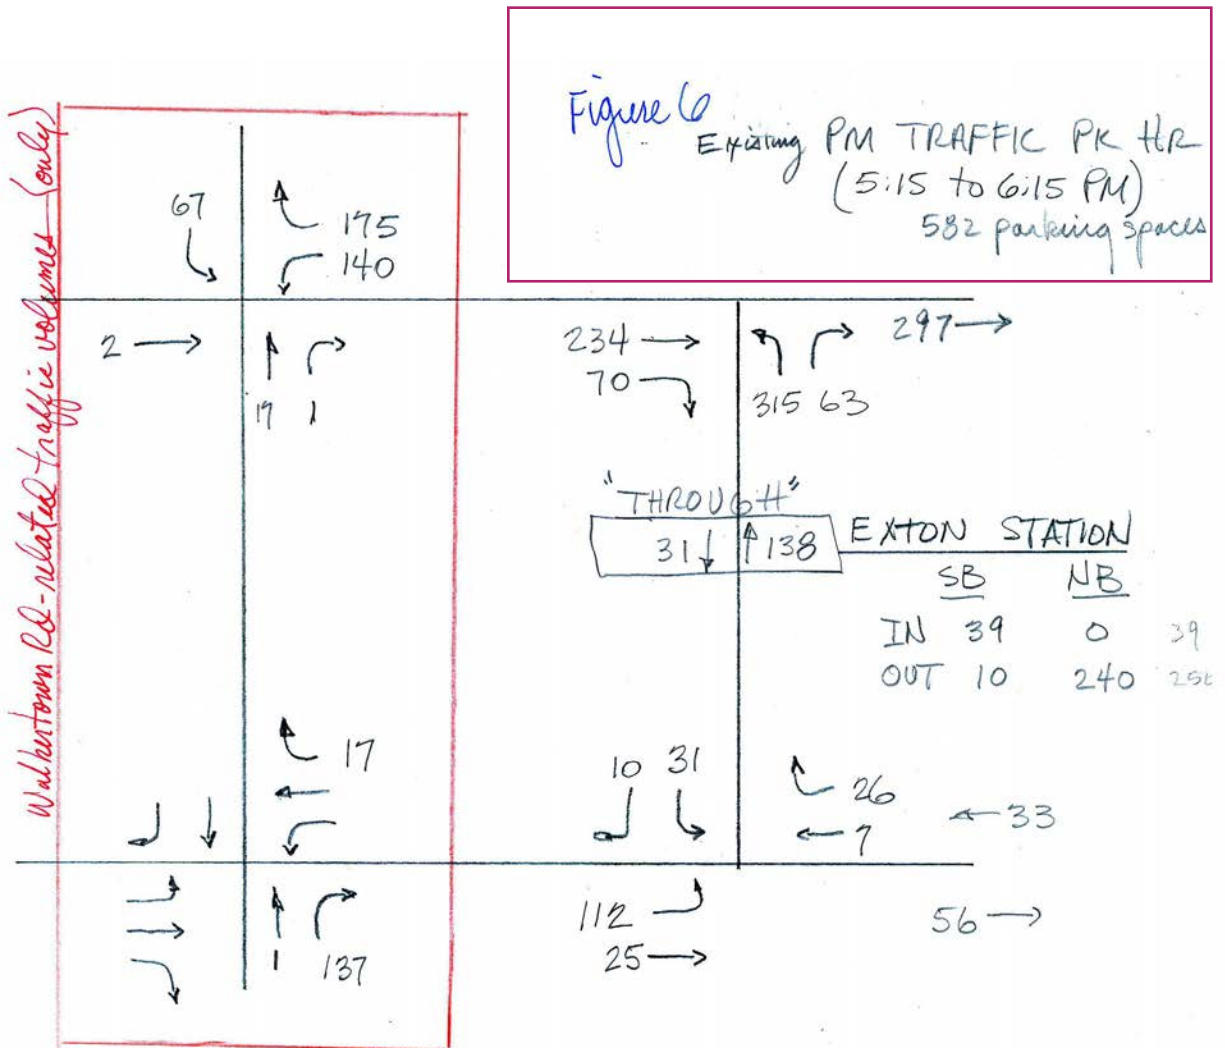 Figure 6
Existing PM TRAFFIC PK HR
(5:15 to 6:15 PM)
582 parking spaces
Walkertown Rd-related traffic volumes (only)
67
175
140
2
19 1
234
70
315 63
297
"THROUGH"
31 138
EXTON STATION
SB NB
IN 39 0 39
OUT 10 240
17
10 31
26
7
33
1 137
112
25
56